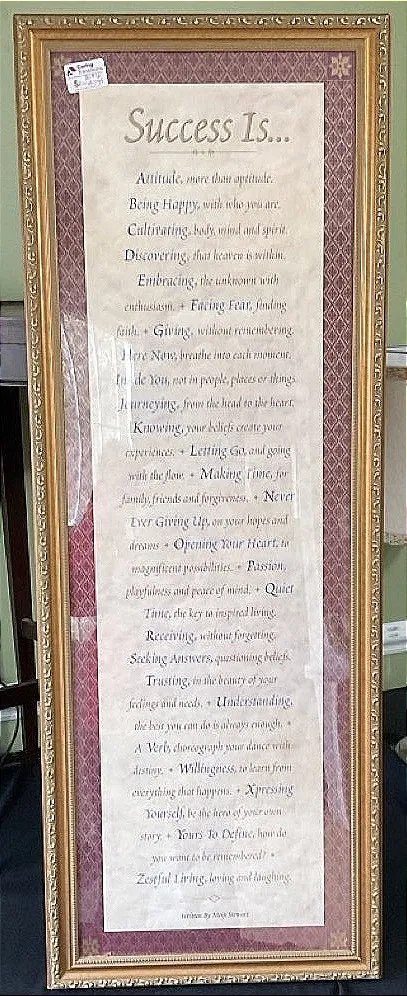 Success Is...
Attitude, more than aptitude.
Being Happy, with who you are.
Cultivating, body, mind and spirit.
Discovering, that heaven is within.
Embracing, the unknown with
enthusiasm. + Facing Fear, finding
faith. + Giving, without remembering.
Here Now, breathe into each moment.
Inside You, not in people, places or things.
Journeying, from the head to the heart.
Knowing, your beliefs create your
experiences. + Letting Go, and going
with the flow. + Making Time, for
family, friends and forgiveness. + Never
Ever Giving Up, on your hopes and
dreams + Opening Your Heart, to
magnificent possibilities. + Passion,
playfulness and peace of mind. + Quiet
Time, the key to inspired living.
Receiving, without forgetting.
Seeking Answers, questioning beliefs.
Trusting, in the beauty of your
feelings and needs. + Understanding,
the best you can do is always enough. +
A Verb, choreograph your dance with
destiny. + Willingness, to learn from
everything that happens. + Xpressing
Yourself, be the hero of your own
story. + Yours To Define, how do
you want to be remembered? +
Zestful Living, loving and laughing.
Written By Mary Stewart